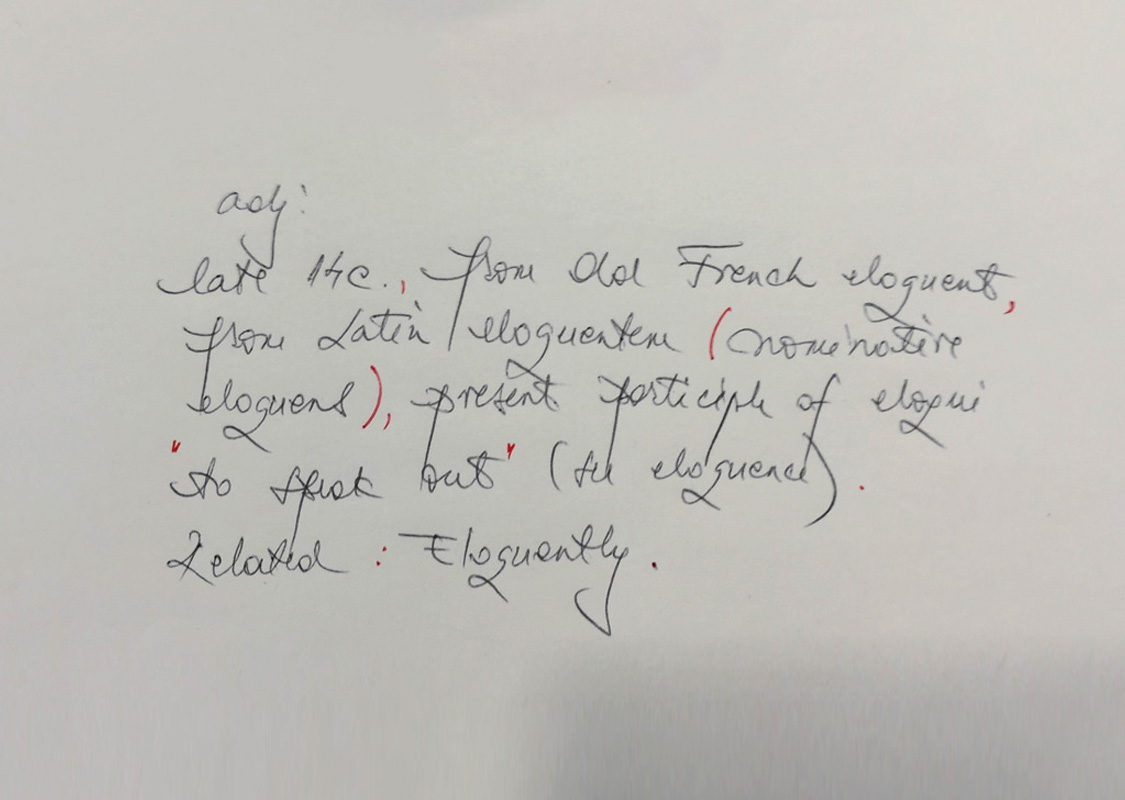 adj:
late 14c., from Old French eloquent,
from Latin eloquentem (nominative
eloquens), present participle of eloqui
"to speak out" (see eloquence).
Related: Eloquently.